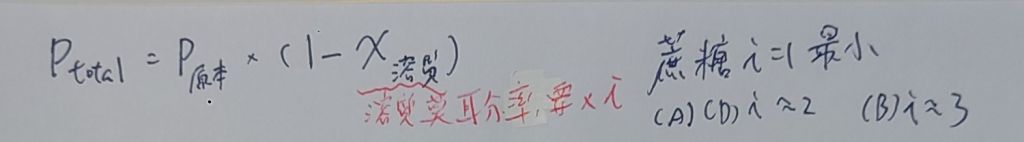 P total = P原本 × (1 - X溶質)
溶質莫耳分率,要×i
蔗糖 i=1 最小
(A)(D) i≈2 (B) i≈3